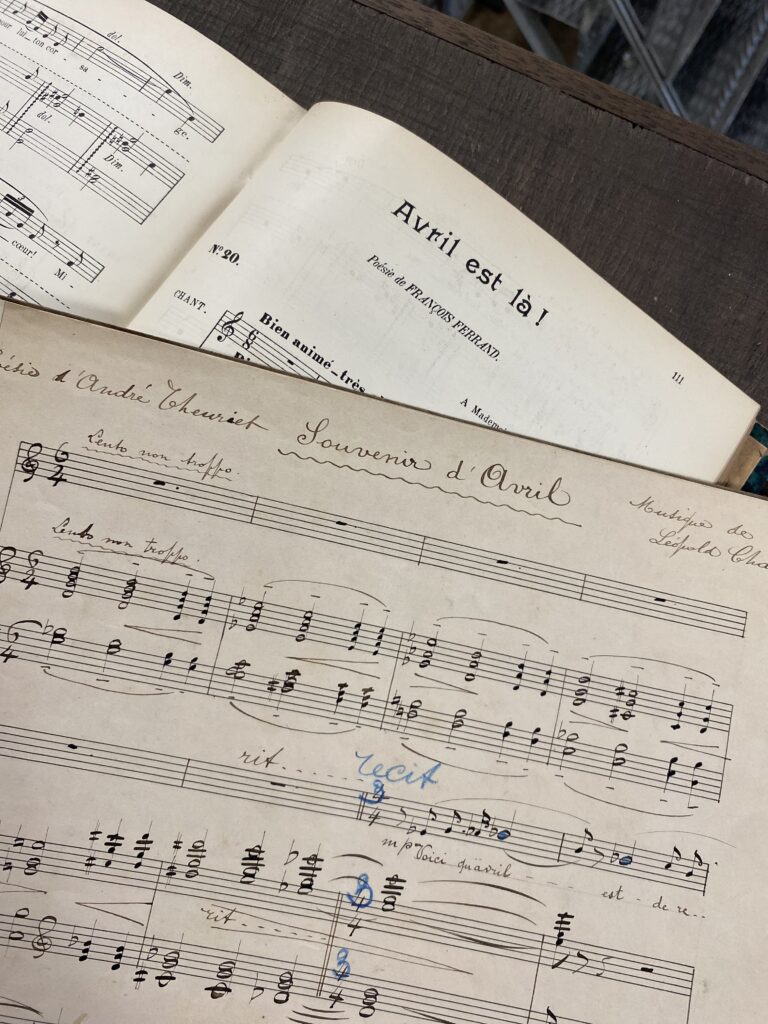 lui_ton cor_
sa
dol.
Dim.
ge.
dol.
Dim.
cœur! Mi_
Avril est là!
Poésie de FRANÇOIS FERRAND.
Nº 20.
111
CHANT.
Bien animé_très
A Mademoi
d'André Theuriet
Souvenir d'Avril
Musique de
Léopold
Lento non troppo.
6 4
Lento non troppo.
6 4
rit....
recit
3 4
mp Voici qu'avril
est - de re..
rit...
3 4
3 4